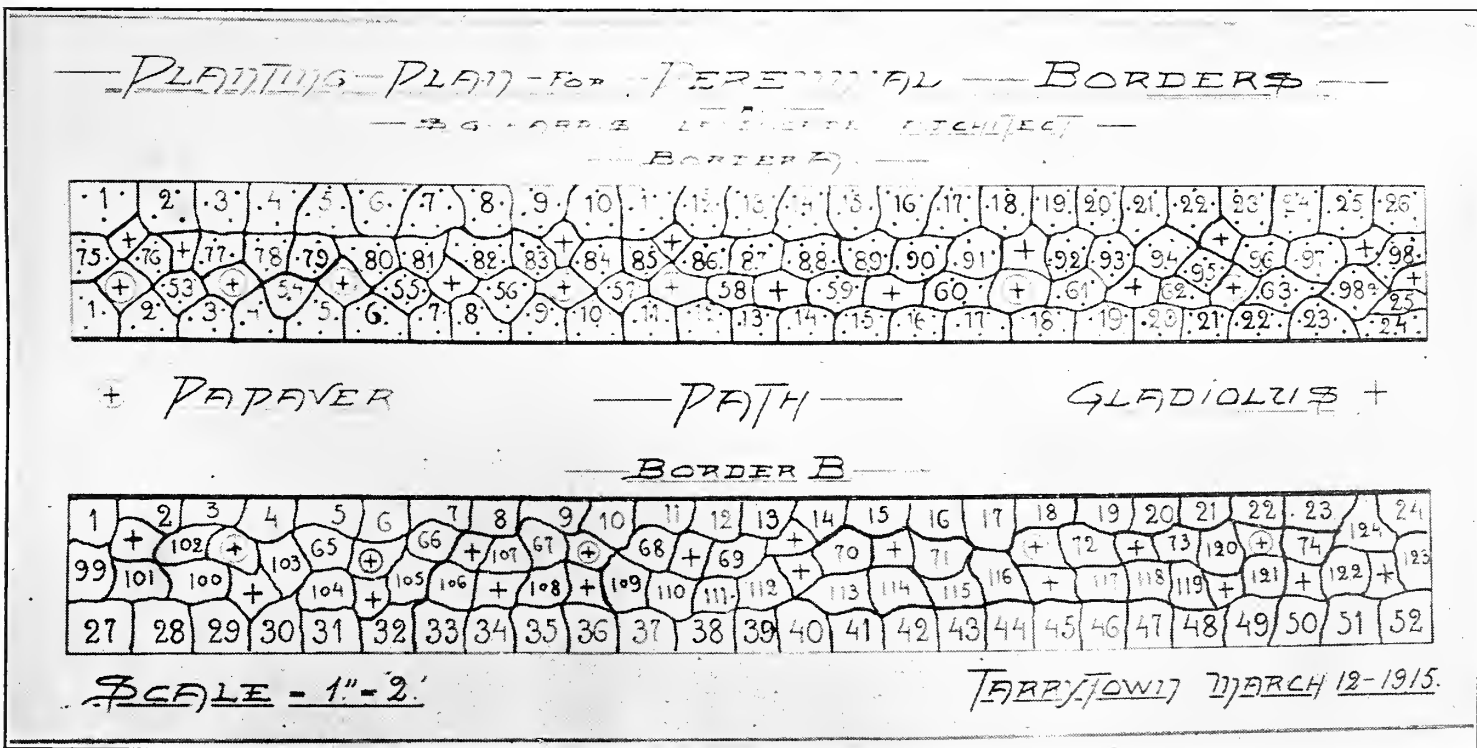 PLANTING PLAN FOR PERENNIAL BORDERS
ARCHITECT
BORDER A
1 2 3 4 5 6 7 8 9 10 11 12 13 14 15 16 17 18 19 20 21 22 23 24 25 26
75 76 + 77 78 79 80 81 82 83 + 84 85 + 86 87 88 89 90 91 + 92 93 94 95 + 96 97 + 98
+ 53 + 54 + 55 + 56 + 57 + 58 + 59 + 60 + 61 + 62 + 63 98a +
1 2 3 4 5 6 7 8 9 10 11 12 13 14 15 16 17 18 19 20 21 22 23 24 25
+ PAPAVER — PATH — GLADIOLUS +
BORDER B
1 2 3 4 5 6 7 8 9 10 11 12 13 14 15 16 17 18 19 20 21 22 23 124 24
+ 102 + 103 65 + 66 + 107 67 + 68 + 69 + 70 + 71 + 72 + 73 120 + 74 123
99 101 100 + 104 + 105 106 + 108 + 109 110 111 112 + 113 114 115 116 + 117 118 119 + 121 + 122 +
27 28 29 30 31 32 33 34 35 36 37 38 39 40 41 42 43 44 45 46 47 48 49 50 51 52
SCALE - 1" - 2'
TARRYTOWN MARCH 12-1915.